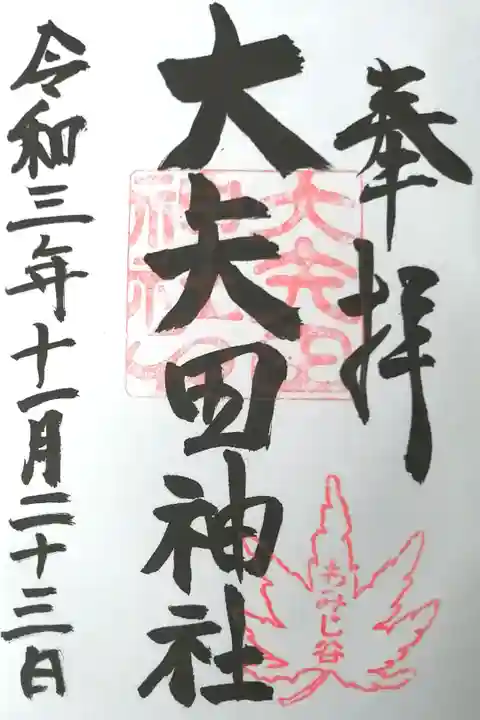 奉拝
大矢田神社
令和三年十一月二十三日
もみじ谷